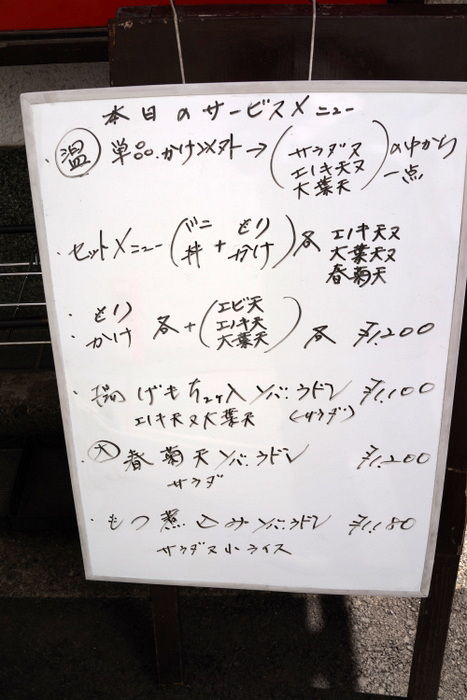 本日のサービスメニュー
・温 単品.かけ以外→(サラダ又 の中から
エノキ天又 一点
大葉天)
・セットメニュー(ミニ丼 + もりかけ)各 エノキ天又
大葉天又
春菊天
・もり 各+(エビ天
・かけ エノキ天 各 ¥1,200
大葉天)
・揚げもち2ヶ入ソバ.ウドン ¥1,100
エノキ天又大葉天 (サラダ)
・大 春菊天ソバ.ウドン ¥1,200
サラダ
・もつ煮込みソバ.ウドン ¥1,180
サラダ又小ライス